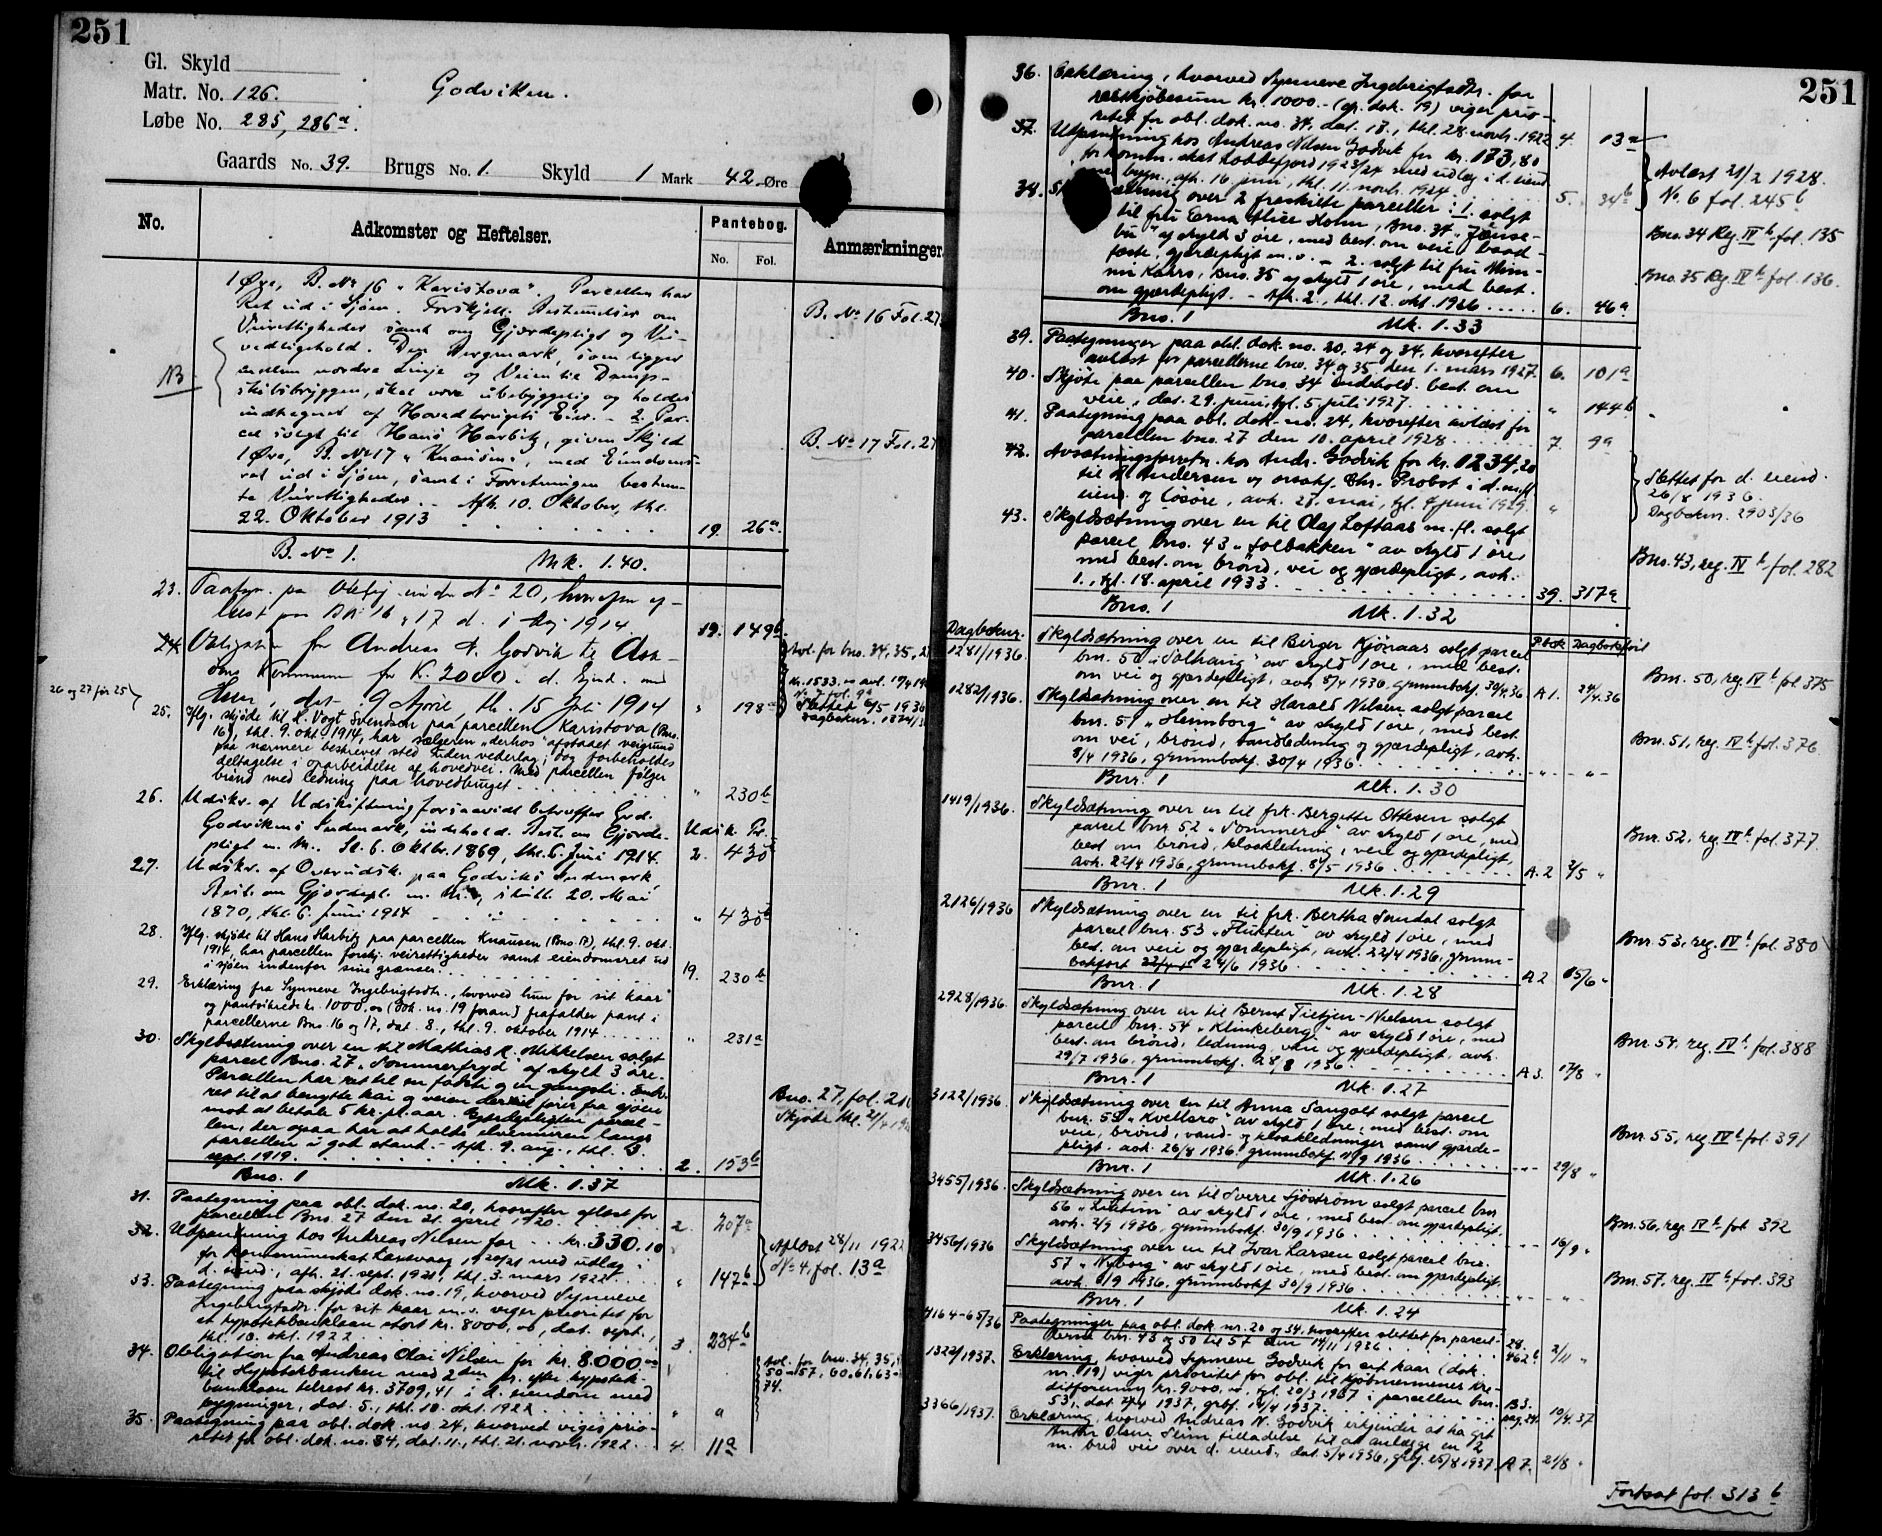 251
Gl. Skyld
Matr. No. 126.
Godviken.
Løbe No. 285, 286 a.
Gaards No. 39. Brugs No. 1. Skyld 1 Mark 42 Øre
No. Adkomster og Heftelser. Pantebog. No. Fol. Anmærkninger.
1 Øre, B. No 16 "Karistova". Parcellen har
Ret ud i Sjøen. Forskjell. Bestemmelser om
Veirettigheder samt om Gjærdepligt og Vei-
vedligehold. Den Bergmark, som ligger
mellem nordre Linje og Veien til Damp-
skibsbryggen, skal være ubebyggelig og holdes
indhegnet af Hovedbrugets Eier. - 2. Par-
cel solgt til Hans Harbitz, given Skyld
1 Øre, B. No 17 "Knausen", med Eiendoms-
ret ud i Sjøen, samt i Forretningen bestem-
te Veirettigheder. - Afh. 10. Oktober, thl.
22. Oktober 1913 19. 26a.
NB
B. No 16 Fol. 27
B. No 17 Fol. 27
B. No 1. Mk. 1.40.
23. Paategn. pa Oblig. under No 20, hvorefter af-
lest for B.No 16 & 17 d. 1914 19. 149b.
24. Obligation fra Andreas N. Godvik til Ask-
øens Kommune for K. 2000 i d. Eiend. med
Huser, dat. 9 April, thl. 15 1914 " 198a
Avl. for bno. 34, 35, 27
Kr. 1533, avl. 17/4 19
No 7 fol. 9a
Slettet 6/5 1936
Dagboknr.
26 og 27 før 25
25. Iflg. skjøde til R. Vogt Svendsen paa parcellen Karistova (Bno.
16), thl. 9. okt. 1914, har sælgeren "derhos" afstaaet veigrund
paa nærmere beskrevet sted uden vederlag; dog forbeholdes
deltagelse i oparbeidelse af hovedvei. Med parcellen følger
brønd med ledning paa hovedbruget " 230b
26. Udskr. af Udskiftning forsaavidt betræffer Grd.
Godvikens Indmark, indehold. Best. om Gjerde-
pligt m. m. Sl. 6. Oktbr. 1869, thl. 6. Juni 1914. Udsk. Pr. 2. 430b
27. Udskr. af Overudsk. paa Godviks Indmark,
Best. om Gjerdepl. m. m., sluttet 20. Mai
1870, thl. 6. Juni 1914 " 430b
28. Iflg. skjøde til Hans Harbitz paa parcellen Knausen (Bno. 17), thl. 9. okt.
1914, har parcellen forskj. veirettigheder samt eiendomsret ud
i sjøen indenfor sine grænser. 19. 230b
29. Erklæring fra Synneve Ingebrigtsdtr., hvorved hun for sit kaar
og pantsikrede kr. 1000,00 (dok. no. 19 foran) frafalder pant i
parcellerne Bno. 16 og 17, dat. 8., thl. 9. oktober 1914 " 231a
30. Skyldsætning over en til Mathias R. Mikkelsen solgt
parcel Bno. 27 "Sommerfryd" af skyld 3 øre.
Parcellen har ret til en fodsti og en gangsti.
ret til at benytte kai og veien dertil fører fra sjøen
mod at betale 5 kr. pr. aar. Gjerdepligten parcel-
len, der ogsaa har at holde elvemuren langs
parcellen i god stand. - Afh. 9. aug., thl. 3.
sept. 1919. 2. 153b
Bno. 27, fol. 210
Skjøde thl. 21/4 19
Bno. 1 Mk. 1.37
31. Paategning paa obl. dok. no. 20, hvorefter afløst for
parcellen Bno. 27 den 21. april 1920 2. 207a
32. Utpantning hos Andreas Nilsen for kr. 330.10
for kommuneskat Laksevaag 1920/21 med utlæg i
d. eiend., afh. 21. sept. 1921, thl. 3. mars 1922. " 147b
Afløst 28/11 1922
No 4, fol. 13a
33. Paategning paa skjøte dok. no. 19, hvorved Synneve
Ingebrigtsdtr. for sit kaar m.v. viger prioritet for
et hypotekbanklaan stort kr. 8000,00, dat. sept.,
thl. 10. okt. 1922 3. 234b
34. Obligation fra Andreas Olai Nilsen for kr. 8.000.00
til Hypotekbanken med 2den pr. efter hypotek-
banklaan tilrest kr. 3709,41 i d. eiendom med
bygninger, dat. 5., thl. 10. okt. 1922 " "
Avl. for bno. 34, 35,
50-57, 60, 61, 63-
74.
35. Paategning paa obl. dok. no 24, hvorved viges prio-
ritet for obl. dok. no. 34, dat. 11., thl. 21. novb. 1922 4. 11a
251
36. Erklæring, hvorved Synneve Ingebrigtsdtr. for
restkjøbesum kr. 1000.- (gr. dok. 19) viger prio-
ritet for obl. dok. no. 34, dat. 18., thl. 28. novb. 1922 4. 13a
37. Utpantning hos Andreas Nilsen Godvik for kr. 173,80
for komm. skat Lobbefjord 1923/24 med utlæg i d. eiend.
bygn., afh. 16 juni, thl. 11. novb. 1924. 5. 34b
Avløst 21/2 1928.
No. 6 fol. 245b
38. over 2 fraskilte parceller: 1. solgt
til fru Erna Alice Holm, Bno. 34 "Jonse-
bu" af skyld 3 øre, med best. om veie baad-
fæste, gjærdepligt m.v. - 2. solgt til fru Mim-
mi Karrs, Bno. 35 af skyld 1 øre, med best.
om gjærdepligt. - Afh. 2., thl. 12. okt. 1926 6. 46a
Bno. 34 Reg. IVb fol. 135
Bno. 35 Reg IVb fol. 136.
Bno. 1 Mk. 1.33
39. Paategninger paa obl. dok. no. 20, 24 og 34, hvorefter
avløst for parcellerne bno. 34 og 35 den 1. mars 1927. 6. 101a
40. Skjøte paa parcellen bno. 34 indehold. best. om
veie, dat. 29. juni, tgl. 5. juli 1927. " 144b
41. Paategning paa obl. dok. no. 24, hvorefter avløst for
parcellen bno. 27 den 10. april 1928 7. 9a
42. Avsætningsforretn. hos Andr. Godvik for kr. 1234,20
til A. Andersen og orsakf. Chr. Probst i d. m. fl.
eiend. og løsøre, avh. 27. mai, tgl. 4 juni 1929. "
Slettet for d. eiend.
26/8 1936.
Dagboknr. 2903/36
43. Skyldsætning over en til Olaf Loftaas m. fl. solgt
parcel bno. 43 "Solbakken" av skyld 1 øre
med best. om brønd, vei og gjærdepligt, avh.
1., tgl. 18. april 1933 39. 317a
Bno. 43, reg. IVb fol. 282
Bno. 1 Mk. 1.32
Dagboknr. P.bok Dagbokført
1281/1936. Skyldsætning over en til Birger Kjønaas solgt parcel
bnr. 50 "Solhaug" av skyld 1 øre, med best.
om vei og gjærdepligt, avh 8/4 1936, grunnbokf. 30/4 36 A 1. 24/4.36
Bnr. 50, reg. IVb fol 375
1282/1936. Skyldsætning over en til Harald Nilsen solgt parcel
bnr. 51 "Heimborg" av skyld 1 øre, med best.
om vei, brønd, vandledning og gjærdepligt, avh.
8/4 1936, grunnbokf. 30/4 1936 " "
Bnr. 51, reg. IVb fol. 376
Bnr. 1 Mk. 1.30
1419/1936. Skyldsætning over en til frk. Bergitte Ottesen solgt
parcel bnr. 52 "Sommero" av skyld 1 øre, med
best om brønd, kloakledning, veie og gjærdepligt,
avh. 22/4 1936, grunnbokf. 8/5 1936 A. 2 2/5 "
Bnr. 52, reg. IVb fol. 377
Bnr. 1 Mk. 1.29
2126/1936 Skyldsætning over en til frk. Bertha Sundal solgt
parcel bnr. 53 "Flukten" av skyld 1 øre, med
best. om veie og gjærdepligt, avh. 22/4 1936, grunn-
bokført 24/6 1936 A 2 15/6 "
Bnr. 53, reg. IVb fol. 380
Bnr. 1 Mk. 1.28
2928/1936. Skyldsætning over en til Bernt Tietjen-Nielsen solgt
parcel bnr. 54 "Klinkeberg" av skyld 1 øre, med
best. om brønd, ledning, veie og gjærdepligt, avh.
29/7 1936, grunnbokf. 28/8 1936 A 3. 17/8 "
Bnr. 54, reg. IVb. fol. 388
Bnr. 1 Mk. 1.27
3122/1936. Skyldsætning over en til Anna Sangolt solgt parcel
bnr. 55 "Kvellaro" av skyld 1 øre, med best. om
veie, brønd, vand- og kloakledninger samt gjærde-
pligt, avh. 26/8 1936, grunnbokf. 11/9 1936 " 29/8 "
Bnr. 55, reg IVb fol. 391
Bnr. 1 Mk. 1.26
3455/1936. Skyldsætning over en til Sverre Sjøstrøm solgt parcel bnr
56 av skyld 1 øre, med best. om gjærdepligt,
avh. 2/9 1936, grunnbokf. 30/9 1936 " 16/9 "
Bnr. 56, reg IVb. fol 392
3456/1936 Skyldsætning over en til Ivar Larsen solgt parcel bnr.
57 "Nyborg" av skyld 1 øre, med best. om gjærdepligt,
avh. 1/9 1936, grunnbokf 30/9 1936 " "
Bnr. 57, reg. IVb fol. 393
Bnr. 1 Mk. 1.24
4164-65/36 Paategninger paa obl. dok. nr. 20 og 34, hvorefter slettet for parcel-
lerne bnr. 43 og 50 til 57 den 14/11 1936 28. 462b 2/11 "
1322/1937. Erklæring, hvorved Synneve Godvik for sit kaar (dok.
nr. 19) viger prioritet for obl. til Kjøbmennenes Kre-
ditforening kr. 9000,00, tgl. 20/3 1937 i parcellen bnr.
53, dat. 7/4 1937, grbf. 14/4 1937 B 3. pag. 24. 10/4 37
3366/1937. Erklæring, hvorved Andreas N. Godvik erkjender at ha git
Anton Olsen Seim tilladelse til at anlægge en 2
m. bred vei over d. eiend., dat. 5/4 1936, grbf. 25/8 1937. A 7. 21/8 "
Fortsat fol. 313 b